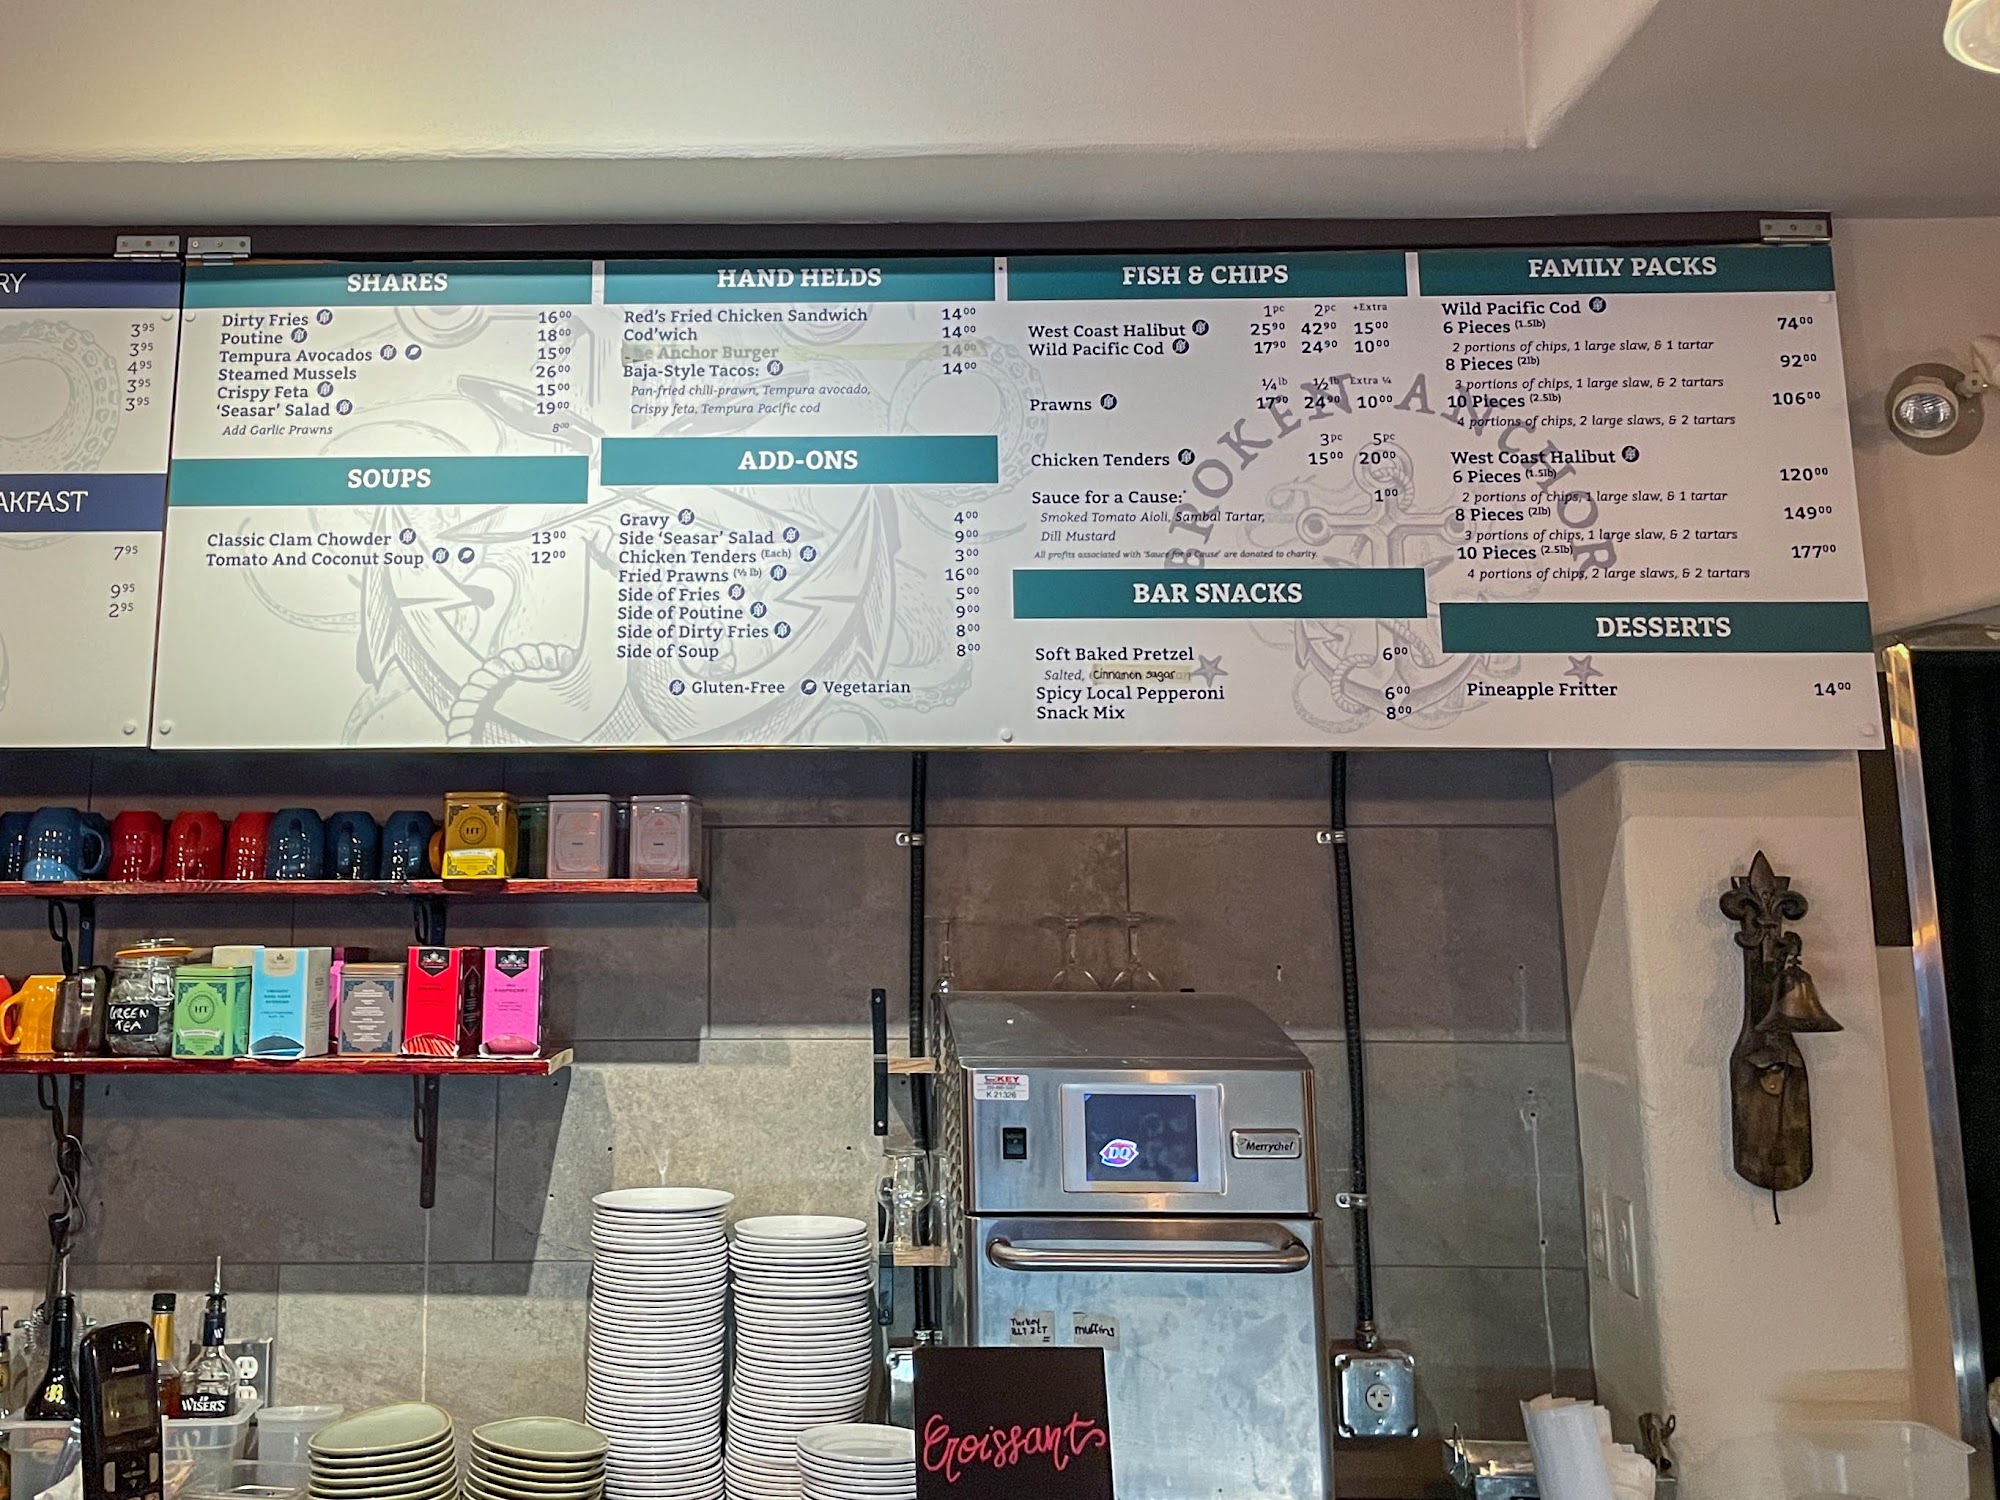 RY
3.95
3.95
4.95
3.95
3.95
AKFAST
7.95
9.95
2.95
SHARES
Dirty Fries 16.00
Poutine 18.00
Tempura Avocados 15.00
Steamed Mussels 26.00
Crispy Feta 15.00
'Seasar' Salad 19.00
Add Garlic Prawns 8.00
SOUPS
Classic Clam Chowder 13.00
Tomato And Coconut Soup 12.00
HAND HELDS
Red's Fried Chicken Sandwich 14.00
Cod'wich 14.00
Anchor Burger 14.00
Baja-Style Tacos: 14.00
Pan-fried chili-prawn, Tempura avocado,
Crispy feta, Tempura Pacific cod
ADD-ONS
Gravy 4.00
Side 'Seasar' Salad 9.00
Chicken Tenders (Each) 3.00
Fried Prawns (½ lb) 16.00
Side of Fries 5.00
Side of Poutine 9.00
Side of Dirty Fries 8.00
Side of Soup 8.00
Gluten-Free Vegetarian
FISH & CHIPS
1pc 2pc +Extra
West Coast Halibut 25.90 42.90 15.00
Wild Pacific Cod 17.90 24.90 10.00
¼lb ½lb Extra ¼
Prawns 17.90 24.90 10.00
3pc 5pc
Chicken Tenders 15.00 20.00
Sauce for a Cause:* 1.00
Smoked Tomato Aioli, Sambal Tartar,
Dill Mustard
All profits associated with 'Sauce for a Cause' are donated to charity.
BAR SNACKS
Soft Baked Pretzel 6.00
Salted, cinnamon sugar
Spicy Local Pepperoni 6.00
Snack Mix 8.00
BROKEN ANCHOR
FAMILY PACKS
Wild Pacific Cod
6 Pieces (1.5lb) 74.00
2 portions of chips, 1 large slaw, & 1 tartar
8 Pieces (2lb) 92.00
3 portions of chips, 1 large slaw, & 2 tartars
10 Pieces (2.5lb) 106.00
4 portions of chips, 2 large slaws, & 2 tartars
West Coast Halibut
6 Pieces (1.5lb) 120.00
2 portions of chips, 1 large slaw, & 1 tartar
8 Pieces (2lb) 149.00
3 portions of chips, 1 large slaw, & 2 tartars
10 Pieces (2.5lb) 177.00
4 portions of chips, 2 large slaws, & 2 tartars
DESSERTS
Pineapple Fritter 14.00
HT
GREEN
TEA
HT
RASPBERRY
KEY
K 21326
DQ
Merrychef
Turkey
muffins
WISER'S
Panasonic
Croissants